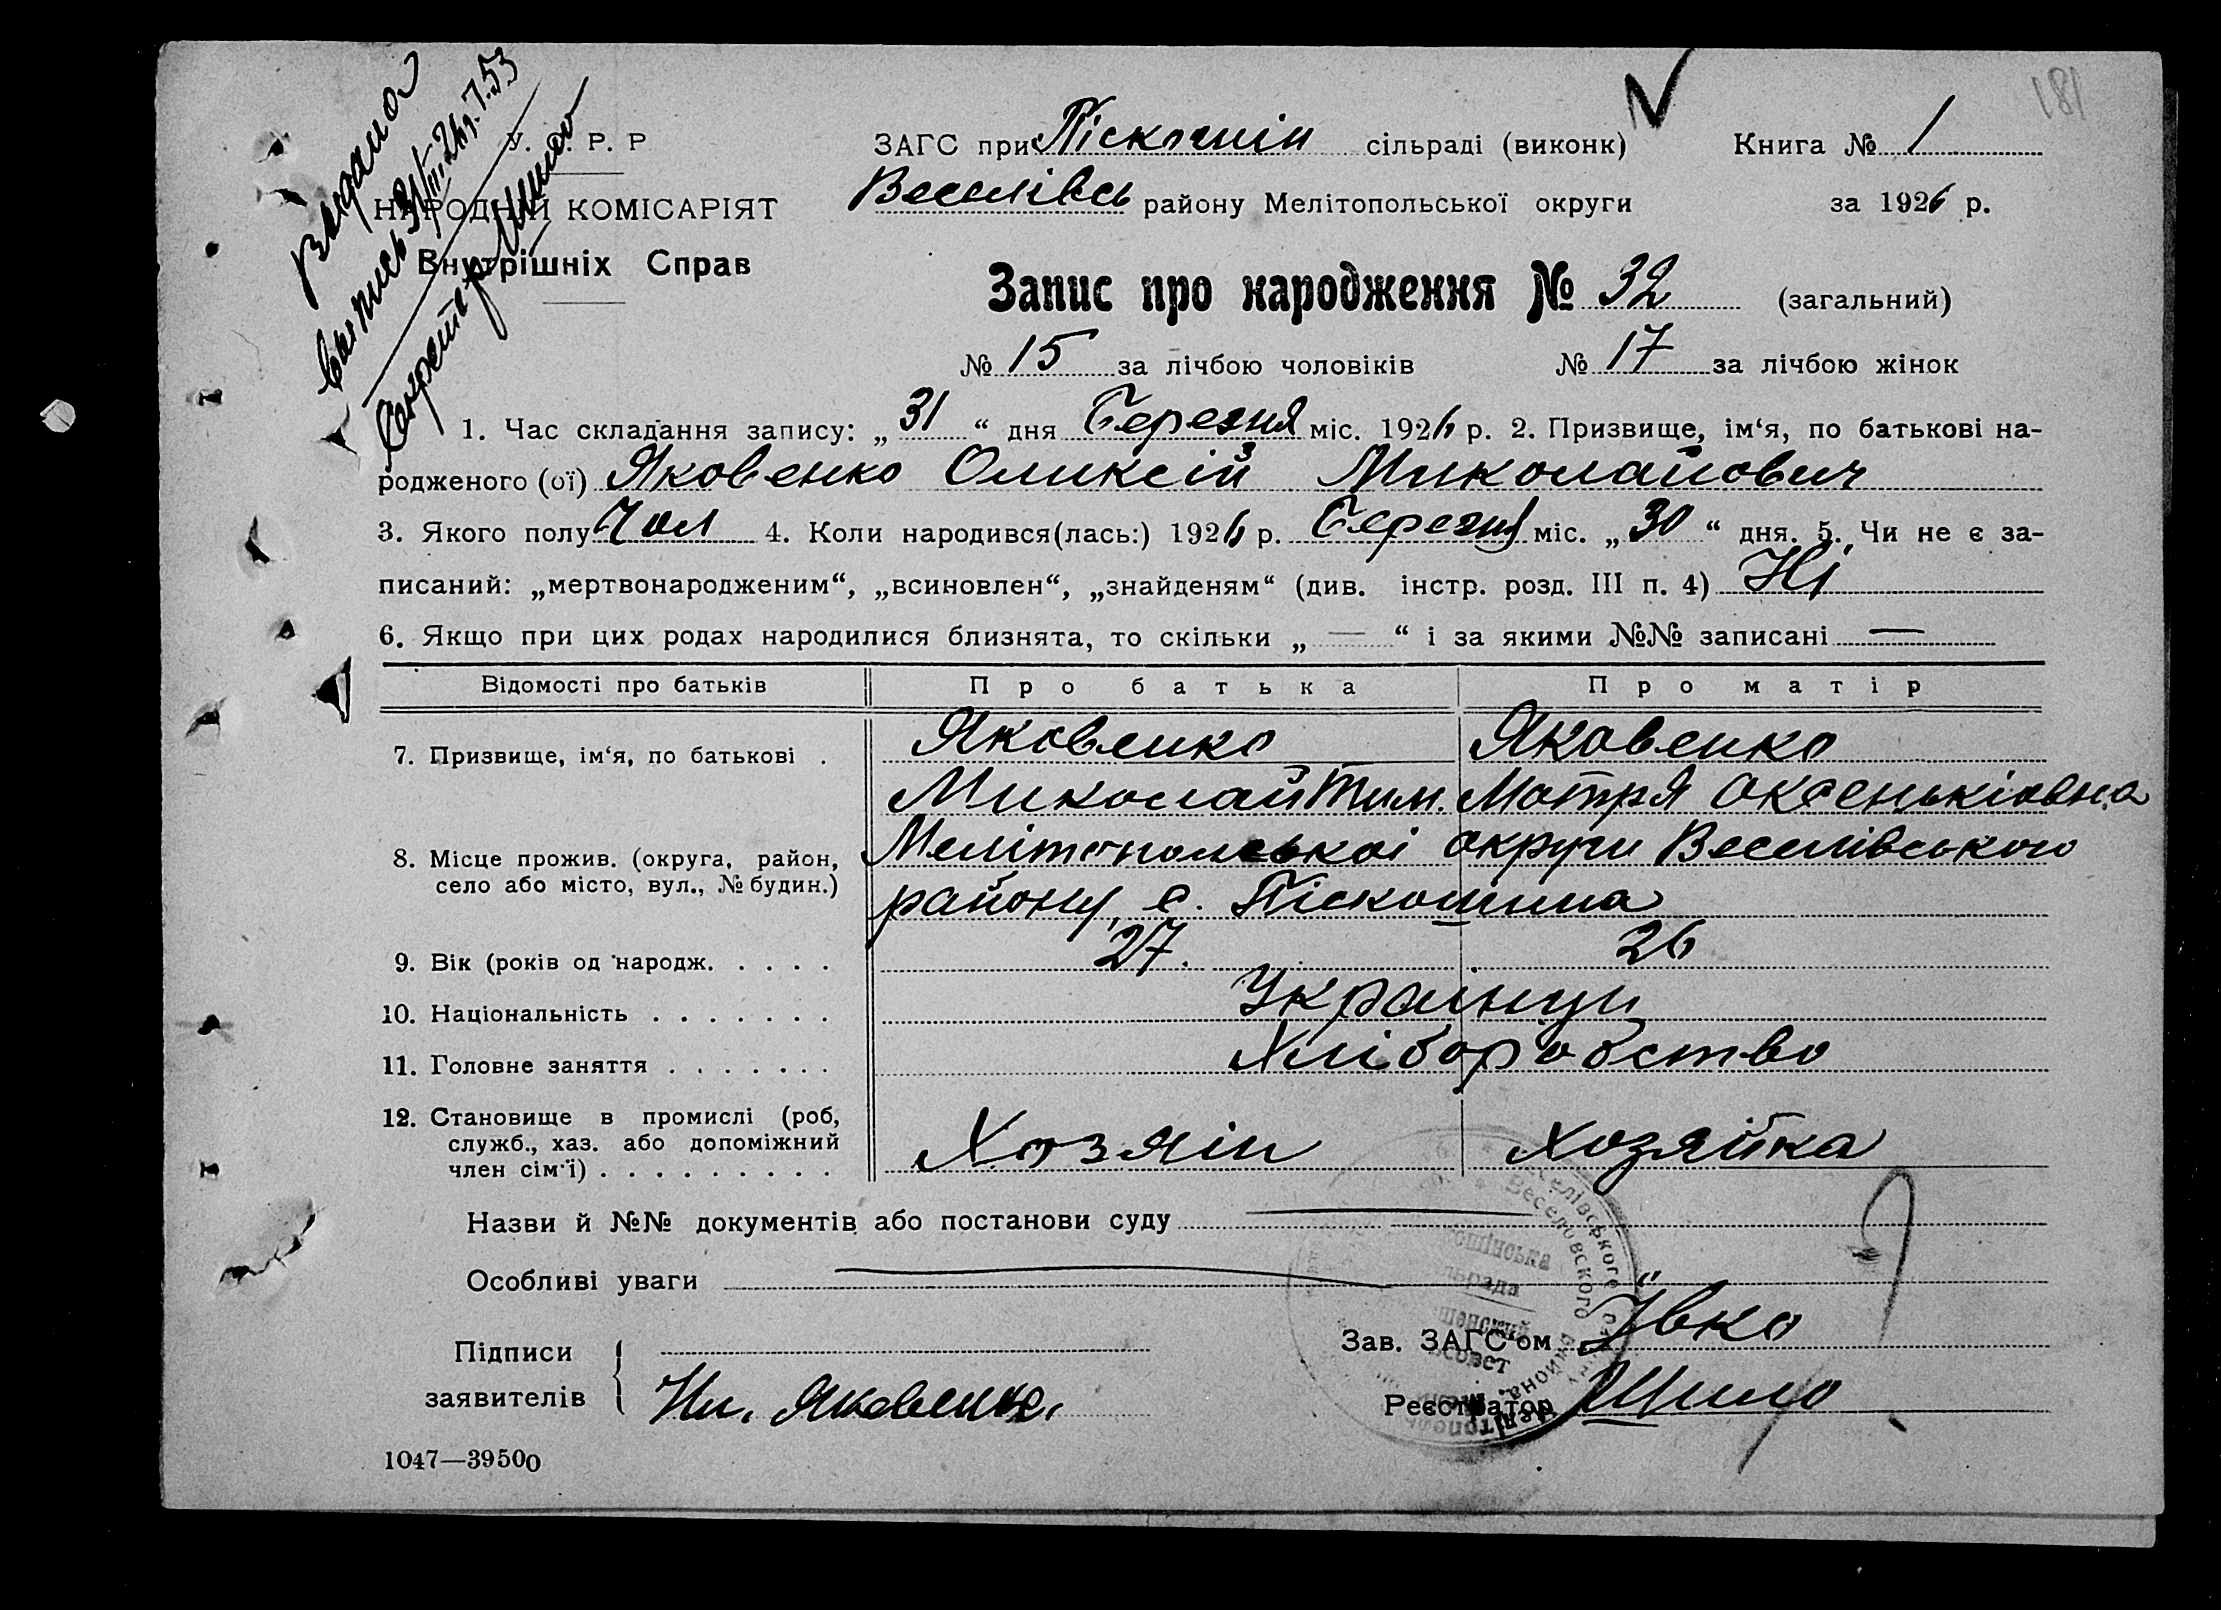 181
У. Р. Р
НАРОДНІЙ КОМІСАРІЯТ
Внутрішніх Справ
Видано
31/III-26 р.
Секретар Шило
ЗАГС при Піскошін сільраді (виконк) Книга № 1
Веселівсь району Мелітопольської округи за 1926 р.
Запис про народження № 32 (загальний)
№ 15 за лічбою чоловіків № 17 за лічбою жінок
1. Час складання запису: „31“ дня Березня міс. 1926 р. 2. Призвище, ім‘я, по батькові на-
родженого (ої) Яковенко Оликсій Миколайович
3. Якого полу Чол 4. Коли народився(лась:) 1926 р. Березня міс. „30“ дня. 5. Чи не є за-
писаний: „мертвонародженим“, „всиновлен“, „знайденям“ (див. інстр. розд. III п. 4) Ні
6. Якщо при цих родах народилися близнята, то скільки „—“ і за якими №№ записані —
Відомості про батьків Про батька Про матір
7. Призвище, ім‘я, по батькові . Яковенко Яковенко
Миколай Тим. Мотря Оксеньківна
8. Місце прожив. (округа, район, Мелітопольскої округи Веселівського
село або місто, вул., № будин.) району, с. Піскошина
9. Вік (років од народж. . . . . 27. 26
10. Національність . . . . . . . Українци
11. Головне заняття . . . . . . . Хліборобство
12. Становище в промислі (роб,
служб., хаз. або допоміжний Хозяін Хозяйка
член сім‘ї) . . . . . . . . .
Назви й №№ документів або постанови суду —
Особливі уваги —
Підписи
заявителів Ни. Яковенко.
Зав. ЗАГС‘ом Івко
Реєстратор Шило
1047—39500